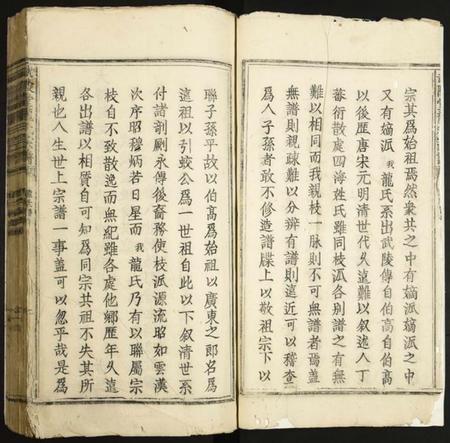 宗其爲始祖焉然衆共之中有嫡派嫡派之中
又有嫡派我龍氏系出武陵傳自伯高自伯高
以後歷唐宋元明清世代久遠難以叙述人丁
蕃衍散處四海姓氏雖同枝派各别譜之有無
難以相同而我親枝一脉則不可無譜者焉蓋
無譜則親疎難以分辨有譜則遠近可以稽查
爲人子孫者敢不修造譜牒上以敬祖宗下以
聯子孫乎故以伯高爲始祖以廣東之郎名爲
遠祖以引蛟公爲一世祖自此以下叙清世系
付諸剞劂永傳後裔務使枝派源流昭如雲漢
次序昭穆炳若日星而我龍氏乃有以聯屬宗
枝自不致散逸而無紀雖各處他鄉歷年久遠
各出譜以相質自可知爲同宗共祖不失其所
親也人生世上宗譜一事蓋可以忽乎哉是爲